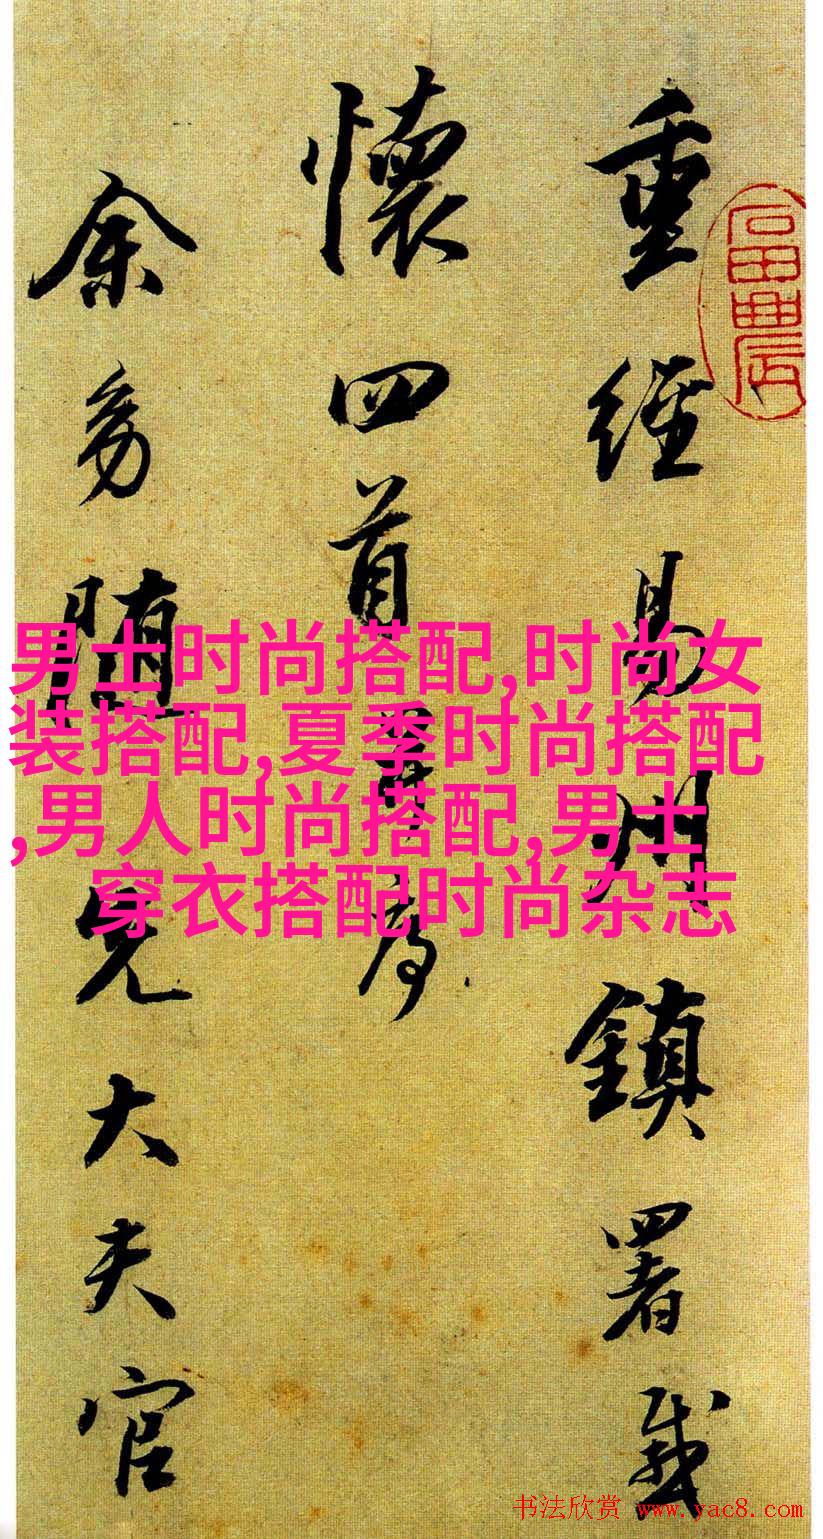 重經易州鎮署感
懷四首并序
余幼隨先大夫官
男士时尚搭配,时尚女
装搭配,夏季时尚搭配
,男人时尚搭配,男士
穿衣搭配时尚杂志
书法欣赏 www.yac8.com